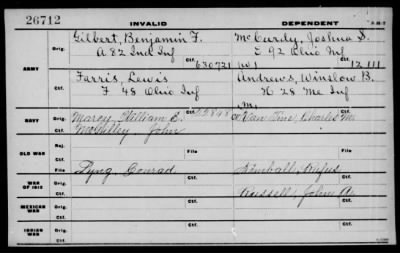 26712 INVALID DEPENDENT
ARMY Orig. Gilbert, Benjamin F. McCurdy, Joshua S.
A 82 Ind Inf E 92 Ohio Inf
Ctf. 630721 12 111
Orig. Farris, Lewis Andrews, Winslow B.
F 48 Ohio Inf H 28 Me Inf
Ctf.
NAVY Orig. Marcy, William E. Van Tine, Charles M.
Ctf. John
OLD WAR Rej. File File
Ctf.
WAR OF 1812 Orig. Lyng Conrad Kimball, Rufus
Ctf. Russell, John A.
MEXICAN WAR Orig.
Ctf.
INDIAN WAR Orig.
Ctf.